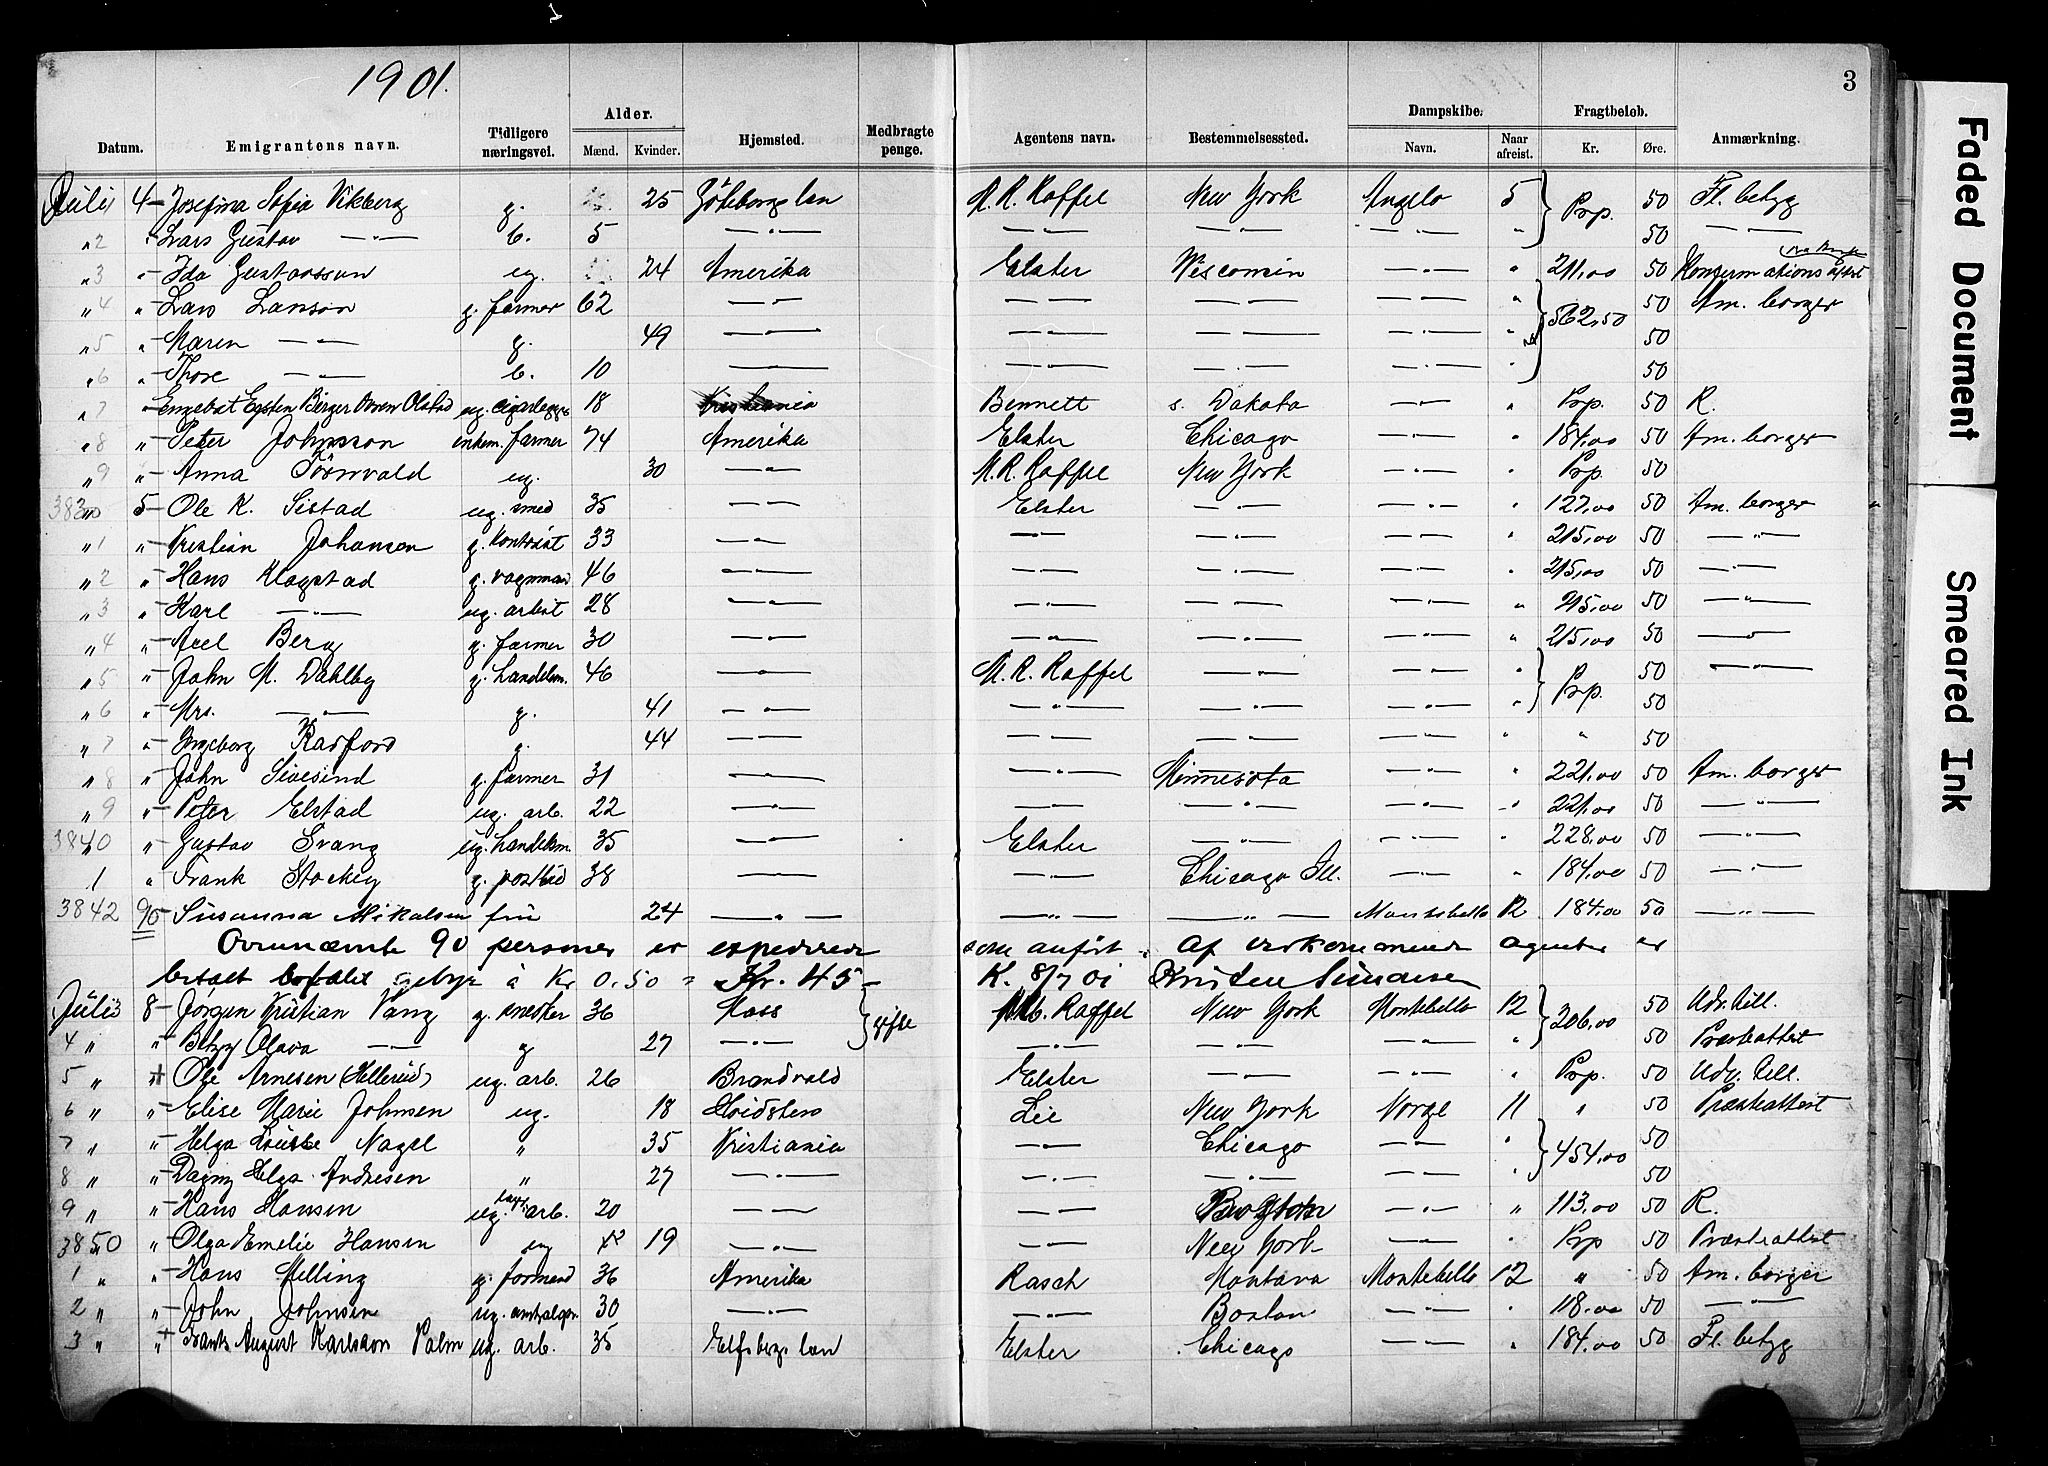 1
1901.
3
Datum. Emigrantens navn. Tidligere næringsvei. Alder. Mænd. Kvinder. Hjemsted. Medbragte penge. Agentens navn. Bestemmelsessted. Dampskibe. Navn. Naar afreist. Fragtbeløb. Kr. Øre. Anmærkning.
Juli 4 Josefina Sofia Vikberg g. 25 Göteborgs lan M. R. Raffel New York Angelo 5 Prp. 50 Fl. betyg
" 2 " Lars Gustav —"— b. 5 —"— —"— —"— —"— " 50 —"—
" 3 " Ida Gustavsson ug. 24 Amerika Elster Wisconsin —"— " 211,00 50 Konfirmations attest
" 4 " Lars Larson g. farmer 62 —"— —"— —"— —"— " 562,50 50 Am. borger
" 5 " Maren —"— g. 49 —"— —"— —"— —"— " 50
" 6 " Thore —"— b. 10 —"— —"— —"— —"— " 50
" 7 " Engebret Eysten Birger Olstad ug. 18 Kristiania Bennett s. Dakota —"— " Prp. 50 R.
" 8 " Peter Johnsson enkem. farmer 74 Amerika Elster Chicago —"— " 184,00 50 Am. borger
" 9 " Anna Törnvald ug. 30 —"— M. R. Raffel New York —"— " Prp. 50
3830 5 Ole K. Sistad ug. smed 35 —"— Elster —"— —"— " 127,00 50 Am. borger
" 1 " Kristian Johansen g. kontorist 33 —"— —"— —"— —"— " 215,00 50 —"—
" 2 " Hans Klagstad g. vognmand 46 —"— —"— —"— —"— " 215,00 50 —"—
" 3 " Karl —"— ug. arbst 28 —"— —"— —"— —"— " 215,00 50 —"—
" 4 " Axel Berg g. farmer 30 —"— —"— —"— —"— " 215,00 50 —"—
" 5 " John M. Dahlby g. handelsm. 46 —"— M. R. Raffel —"— —"— " Prp. 50 —"—
" 6 " Mrs. —"— g. 41 —"— —"— —"— —"— " 50
" 7 " Ingeborg Radford g. 44 —"— —"— —"— —"— " " 50
" 8 " John Sivesind g. farmer 31 —"— —"— Minnesota —"— " 221,00 50 Am. borger
" 9 " Peter Elstad ug. arb. 22 —"— —"— —"— —"— " 221,00 50 —"—
3840 " Gustav Svang ug. handelsm. 35 —"— Elster —"— —"— " 228,00 50 —"—
1 " Frank Stockey g. postbud 38 —"— —"— Chicago Ill. —"— " 184,00 50 —"—
3842 90 Susanna Mikalsen frü 24 —"— —"— —"— Montebello 12 184,00 50 —"—
Ovennæmte 90 personer er expederede som anført af vedkommende agenter er
betalt gebyr à Kr 0.50 = Kr. 45 — K. 8/7 01
Juli 3 8 Jørgen Kristian Vang g. snedker 36 Moss gifte Raffel New York Montebello 12 206,00 50 Udv. till.
4 " " Betzy Olava —"— g 27 —"— —"— —"— —"— " 50 Præsteattest
5 " " Ole Arnesen (Hellerud) ug. arb. 26 Brandvold Elster —"— —"— Prp. 50 Udv. till.
6 " " Elise Marie Johnsen ug. 18 Skidsten Lie New York Norge 11 " 50 Præsteattest
7 " " Helga Louise Nagel " 35 Kristiania —"— Chicago —"— " 454,00 50
8 " " Dagny Helga Andresen " 27 —"— —"— —"— —"— " 50
9 " " Hans Hansen ug. arb. 20 —"— —"— —"— " 113,00 50 R.
3850 " Olga Emelie Hansen ug 19 —"— —"— New York —"— " Prp 50 Præsteattest
1 " " Hans Melling g. formand 36 Amerika Rasch Montana Montebello 12 " 50 Am. borger
2 " " John Johnsen ug. 30 —"— —"— Boston —"— " 118,00 50 —"—
3 " " Frants August Karlsson Palm ug. arb. 35 Elfsborgs lan Elster Chicago —"— " 184,00 50 Fl. betyg
Faded Document
Smeared Ink